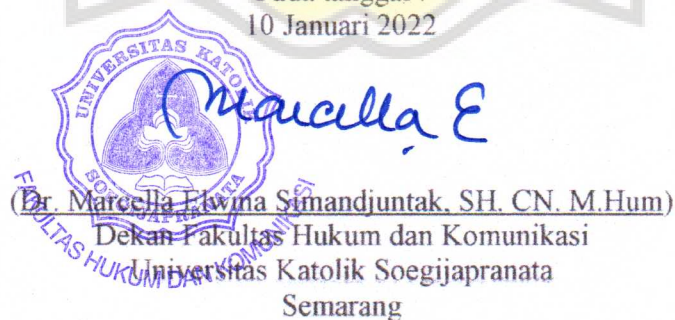 10 Januari 2022
UNIVERSITAS KATOLIK
SOEGIJAPRANATA
FAKULTAS HUKUM DAN KOMUNIKASI
Marcella E
(Dr. Marcella Elwina Simandjuntak, SH. CN. M.Hum)
Dekan Fakultas Hukum dan Komunikasi
Universitas Katolik Soegijapranata
Semarang